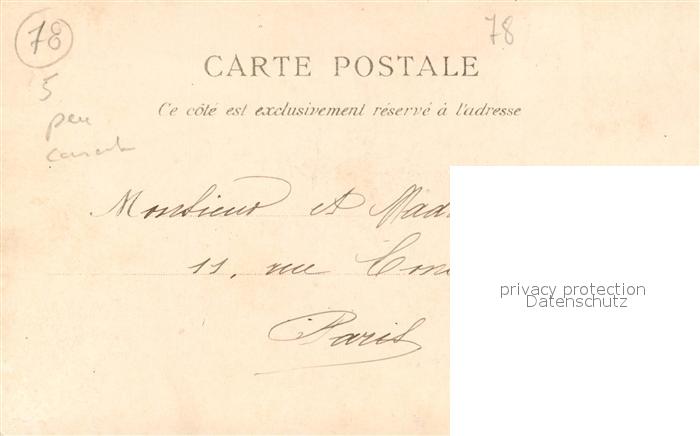 78
78
CARTE POSTALE
5
Ce côté est exclusivement réservé à l'adresse
peu
Monsieur et Mad
11, rue Con
privacy protection
Datenschutz
Paris